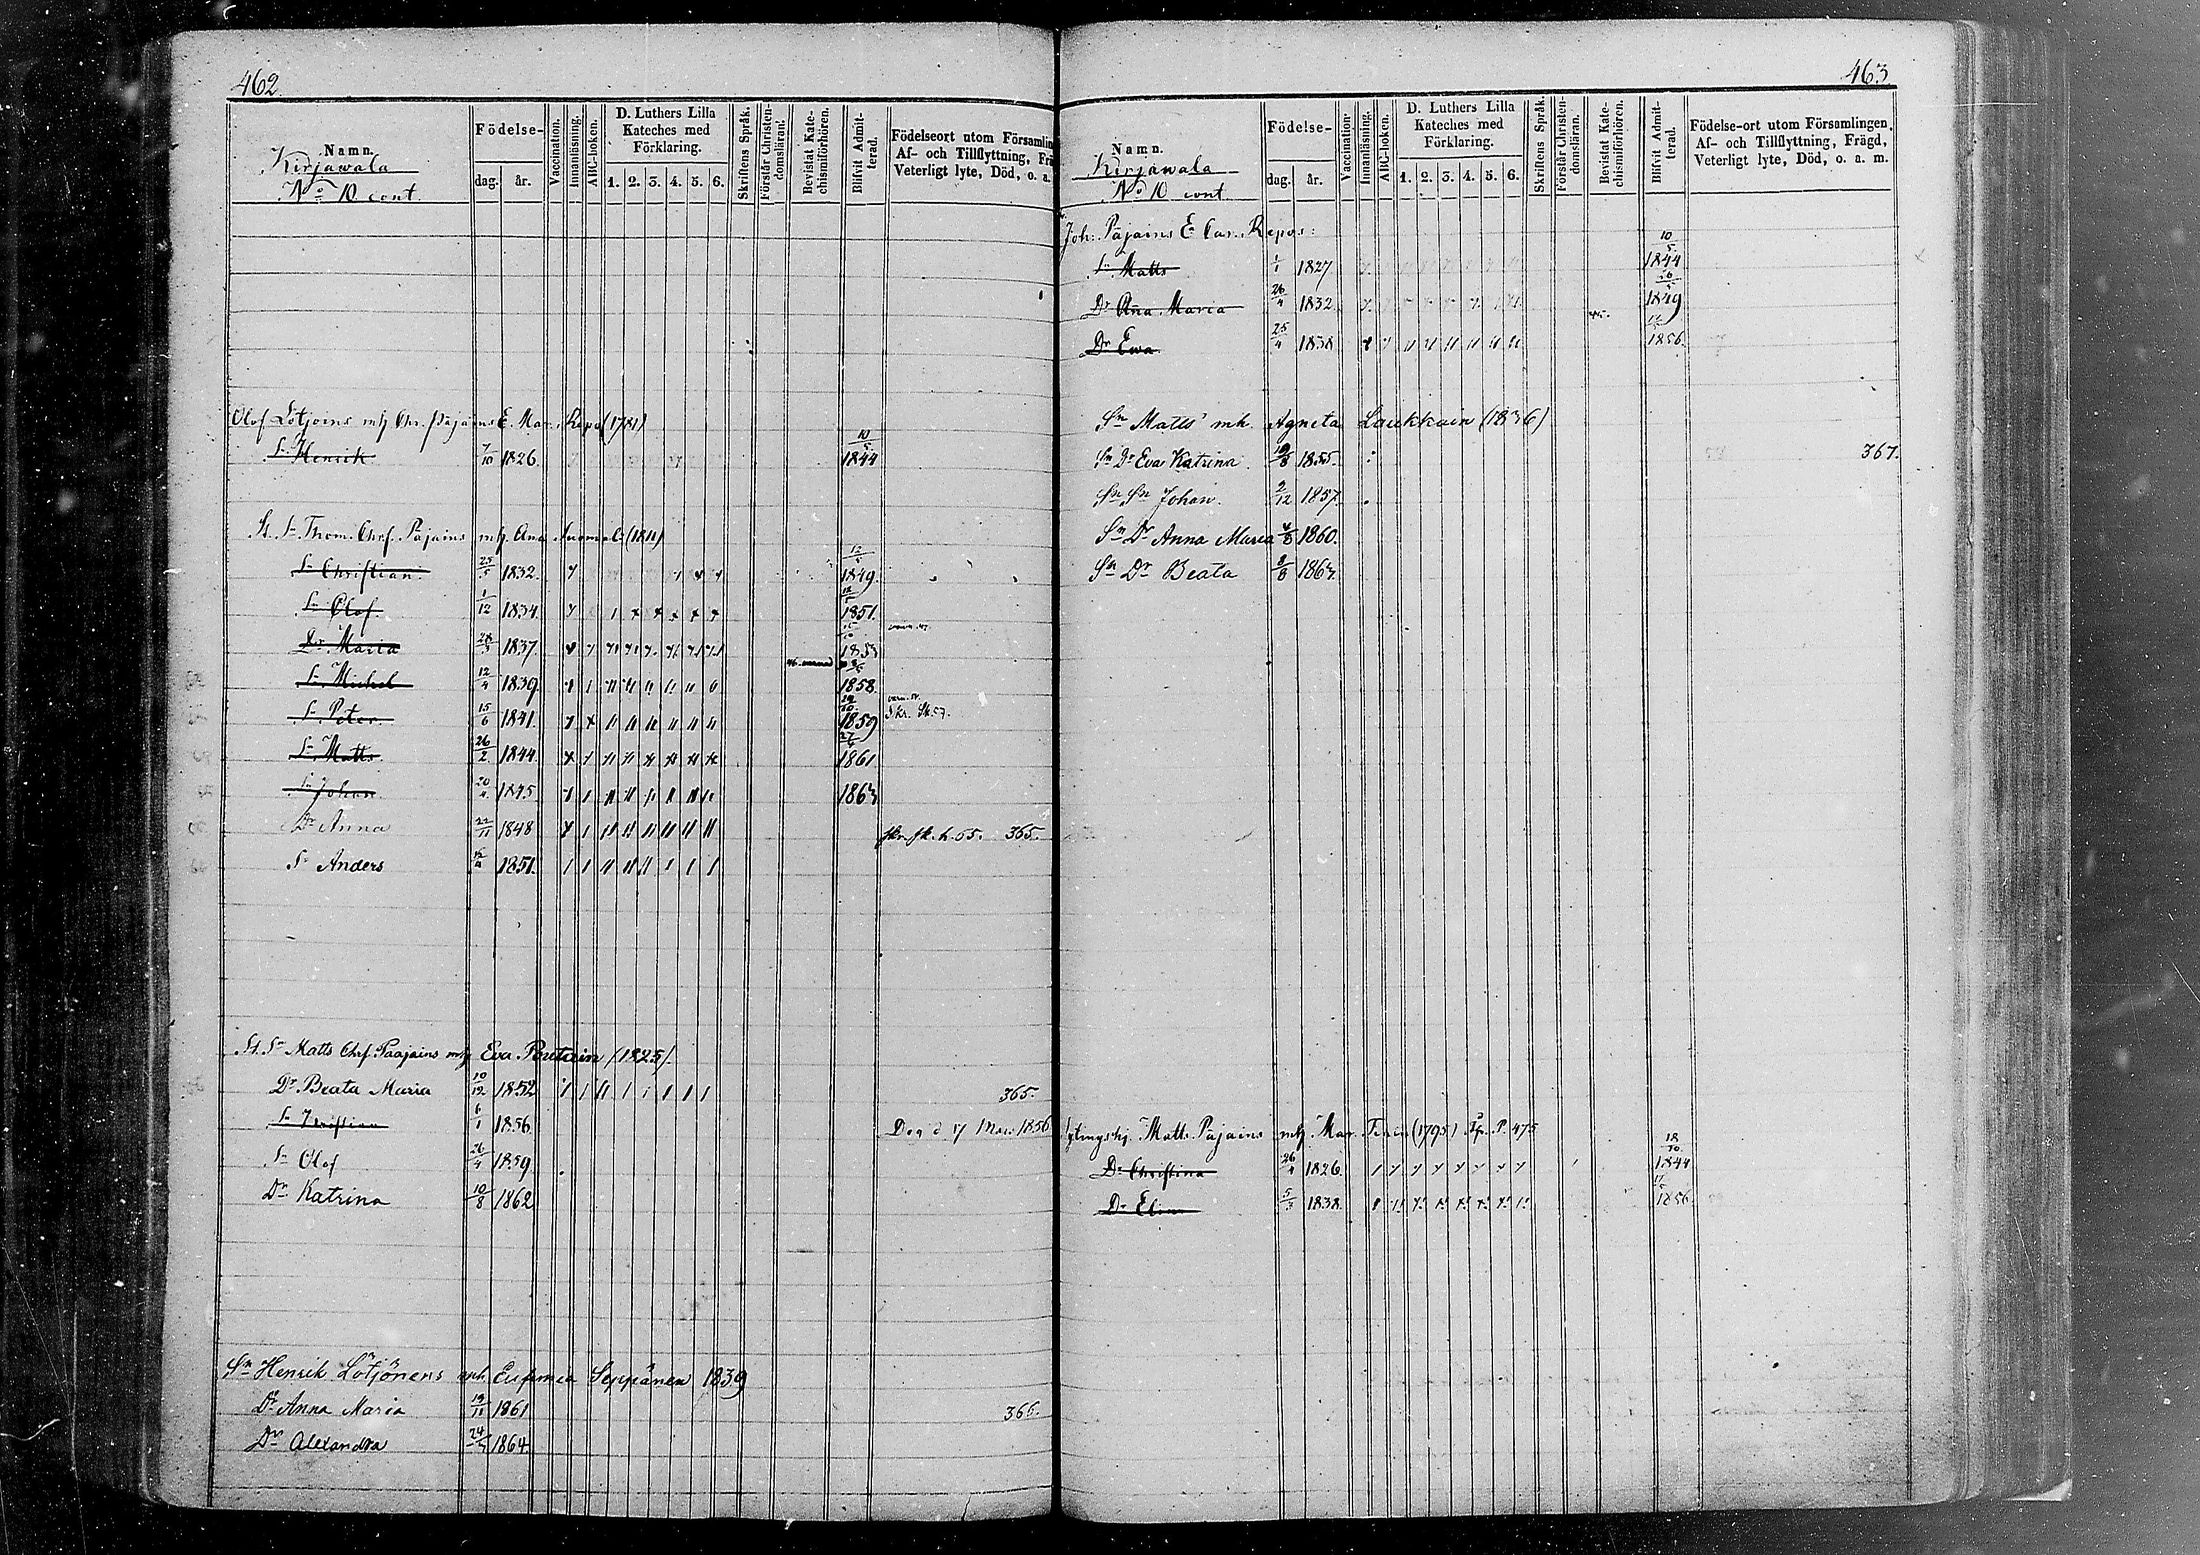 462
Namn.
Kirjawala
No 10 cont.
Födelse-
dag. år.
Vaccination.
Innanläsning.
ABC-boken.
D. Luthers Lilla
Kateches med
Förklaring.
1. 2. 3. 4. 5. 6.
Skriftens Språk.
Förstår Christen-
domsläran.
Bevistat Kate-
chismiförhören.
Blifvit Admit-
terad.
Födelseort utom Församlin
Af- och Tillflyttning, Frä
Veterligt lyte, Död, o. a.
Olof Lötjoins mh Chr. Päjäins E. Mar. Repo (1781)
Sn Henrik 7/10 1826. 10/5 1844
St. Sn Thom. Chrf. Päjains mh. Ana (1811)
Sn Christian. 25/5 1832. 12/5 1849.
Sn Olof 1/12 1834. 1851.
Dr Maria 1837. 1853
Sn Michel 12/4 1839. 1858.
Sn Peter 15/6 1841. 1859
Sn Matts 26/2 1844. 1861
Sn Johan 20/4 1845. 1863
Dr Anna 22/11 1848 365.
Sn Anders 1851.
St. Sn Matts Chrf. Paajains mh Eva (1825)
Dr Beata Maria 10/12 1852 365.
Sn Kristian 6/1 1856. Död d. 17 1856
Sn Olof 26/4 1859
Dr Katrina 10/8 1862
Sn Henrik Lötjönens mh. Eufemia Seppänen 1839
Dr Anna Maria 19/11 1861 366.
Dr Alexandra 1864
463
Namn.
Kirjawala
No 10 cont.
Födelse-
dag. år.
Vaccination.
Innanläsning.
ABC-boken.
D. Luthers Lilla
Kateches med
Förklaring.
1. 2. 3. 4. 5. 6.
Skriftens Språk.
Förstår Christen-
domsläran.
Bevistat Kate-
chismiförhören.
Blifvit Admit-
terad.
Födelse-ort utom Församlingen,
Af- och Tillflyttning, Frägd,
Veterligt lyte, Död, o. a. m.
Joh: Päjains E. Car. Repos:
Sn Matts 1/1 1827 10/5 1844
Dr Ana Maria 26/4 1832 1849
Dr Ewa 25/4 1838 1856.
Sn Matts' mh. Agneta Laukkain (1836)
Sn Dr Eva Katrina 1855. 367.
Sn Sn Johan. 2/12 1857.
Sn Dr Anna Maria 1860.
Sn Dr Beata 1863.
Matts Päjains mh Mar. (1795) P. 475
Dr Christina 26/4 1826. 18/10 1844
Dr 1838. 1856